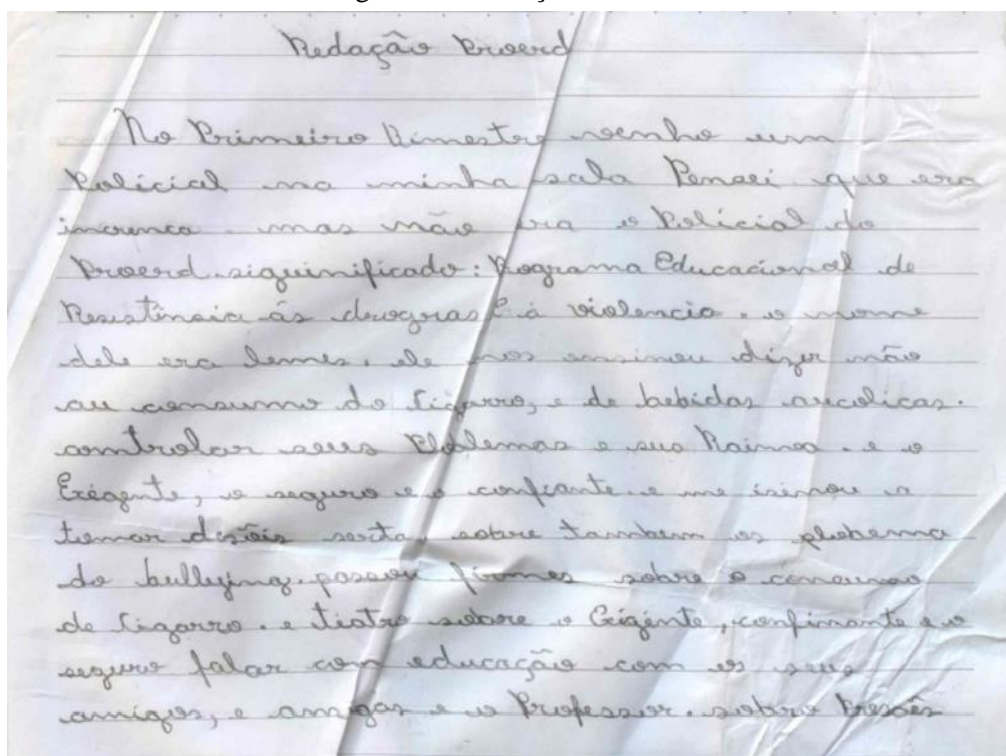 Redação Proerd
No Primeiro Bimestre venho um
Policial na minha sala Pensei que era
increnca. mas não era o Policial do
Proerd. siguinificado: Programa Educacional de
Resistência ás drogras E á violencia. o nome
dele era lemes. ele nos ensinou dizer não
au consumo do Cigarro, e de bebidas aucolicas.
controlar seus Plobemas e sua Raiva. e o
Exegente, o seguro e o confiante. e me insinou a
tomar desições serta, sobre tambem os plobema
do bullying. passou firmes sobre o consumo
de Cigarro. e tiatro sobre o Exigente, confinante e o
seguro falar com educação com os seus
amigos, e amigas e o Professor. sobre Presões